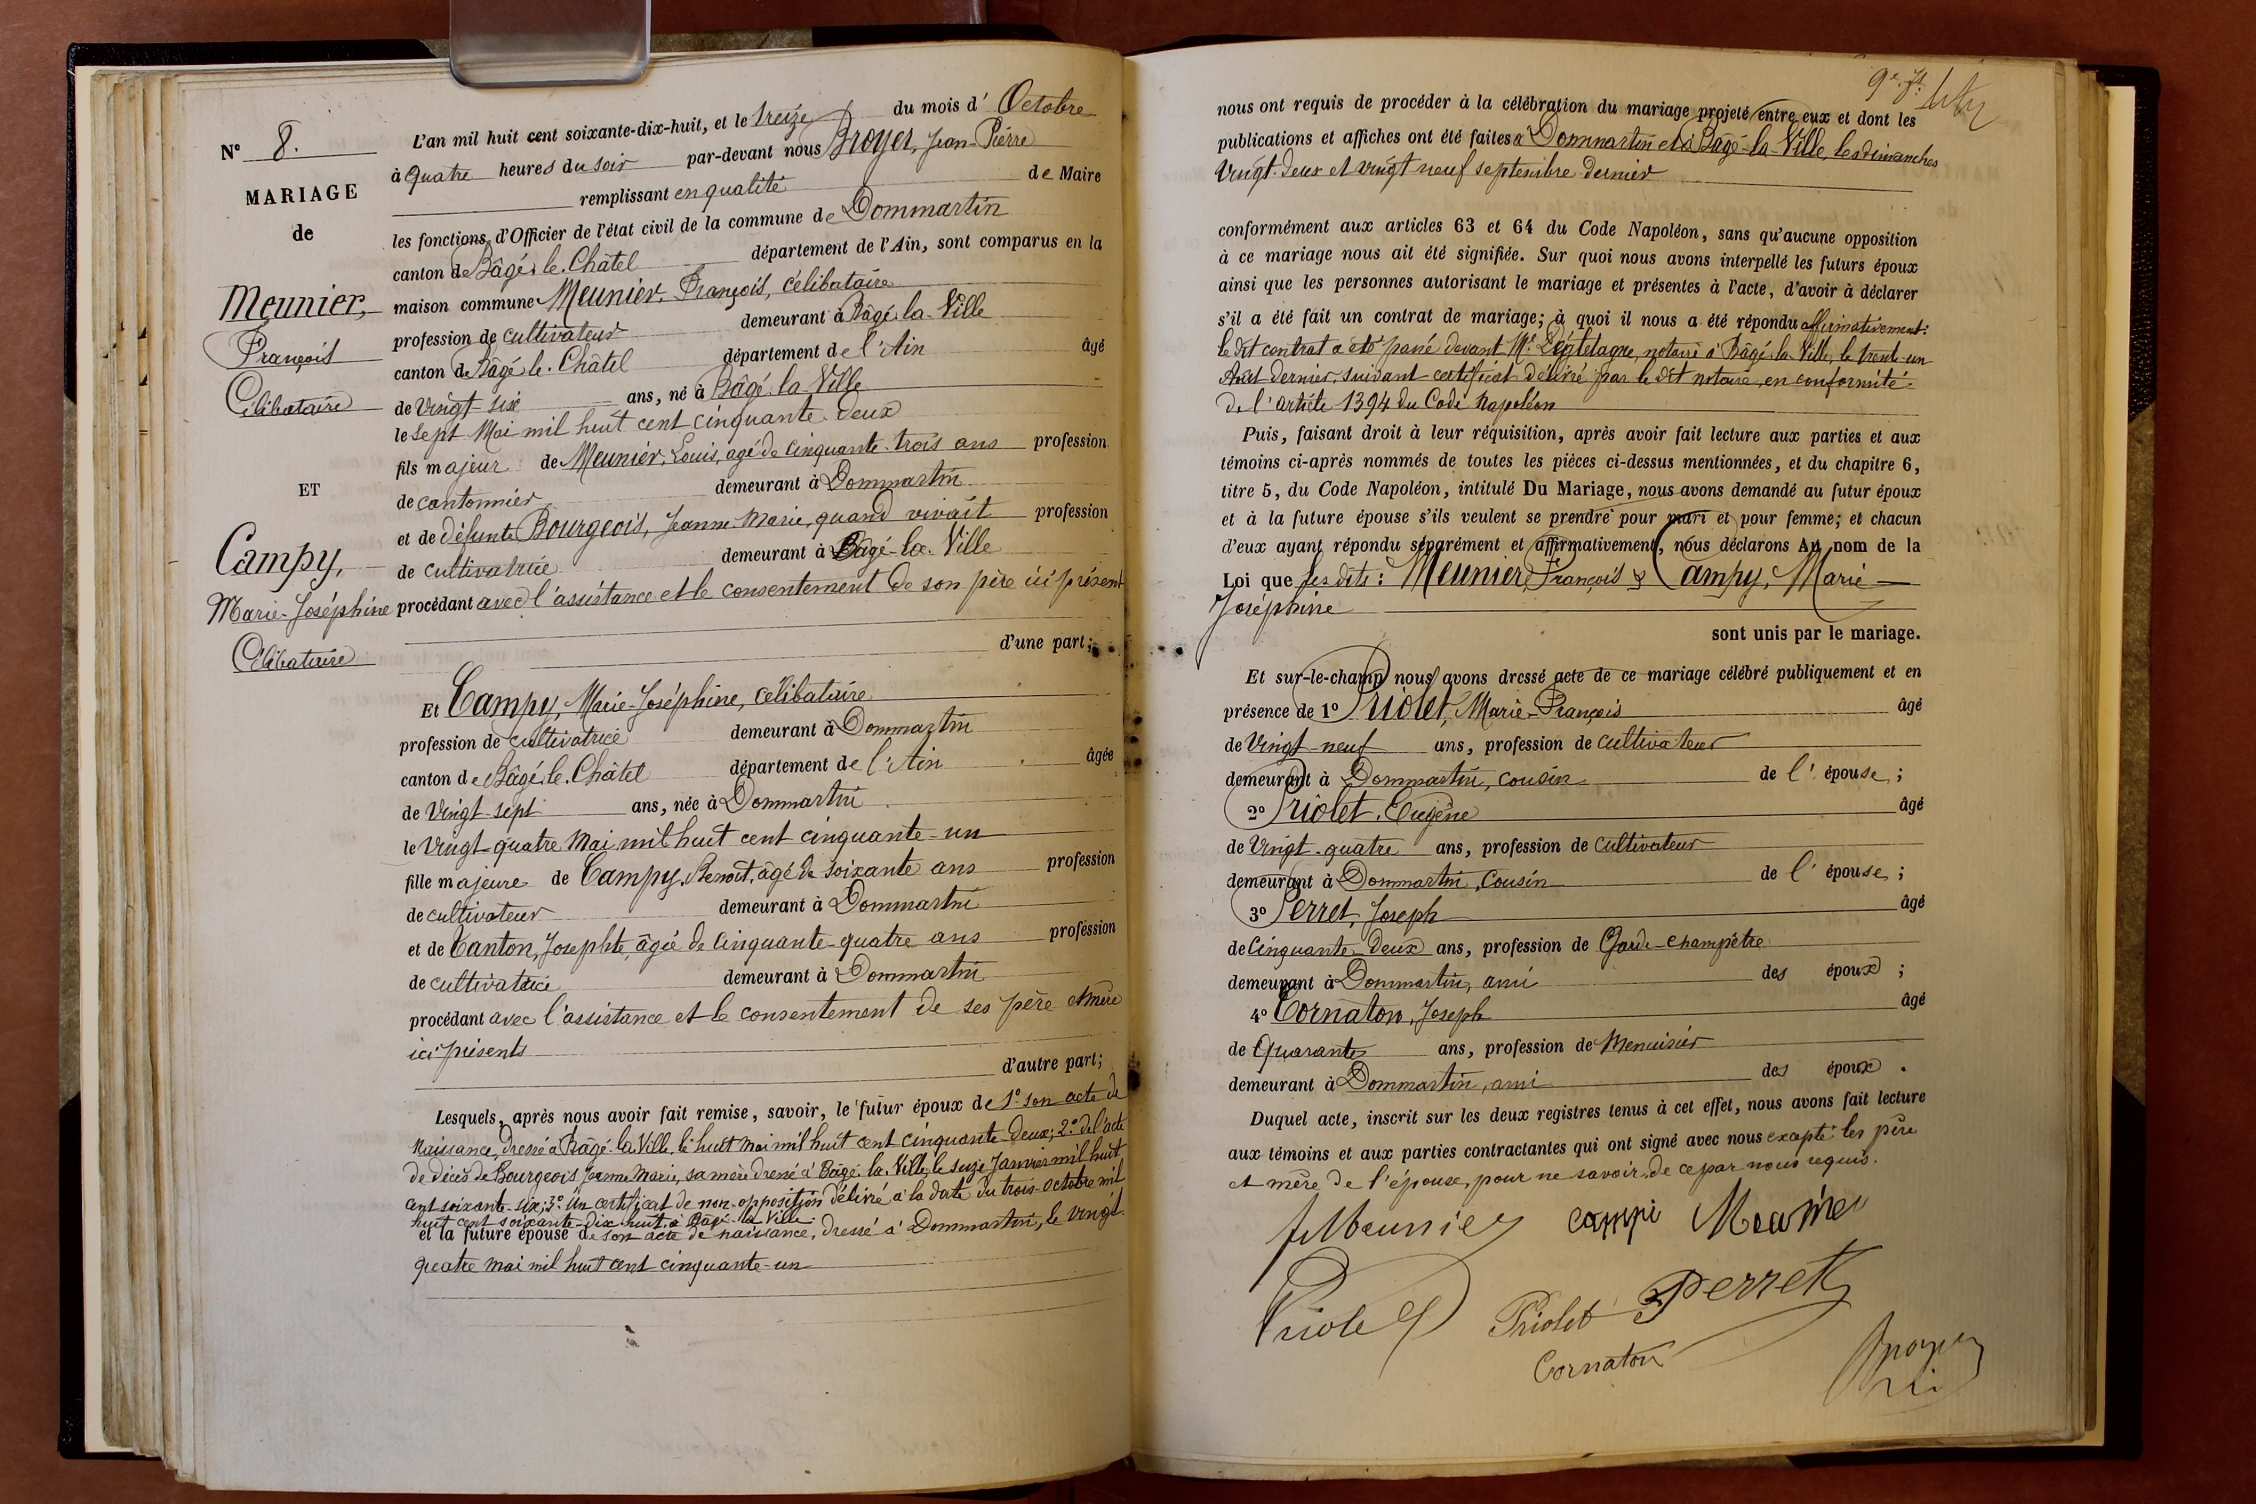 N° 8.
MARIAGE
de
Meunier,
François
Célibataire
ET
Campy,
Marie-Joséphine
Célibataire
L'an mil huit cent soixante-dix-huit, et le treize du mois d' Octobre
à quatre heures du soir par-devant nous Broyer, Jean-Pierre
remplissant en qualité de Maire
les fonctions d'Officier de l'état civil de la commune de Dommartin
canton de Bâgé-le-Châtel département de l'Ain, sont comparus en la
maison commune Meunier, François, célibataire
profession de cultivateur demeurant à Bâgé-la-Ville
canton de Bâgé-le-Châtel département de l'Ain âgé
de vingt six ans, né à Bâgé-la-Ville
le sept Mai mil huit cent cinquante-deux
fils majeur de Meunier, Louis, agé de cinquante-trois ans profession
de cantonnier demeurant à Dommartin
et de défunte Bourgeois, Jeanne Marie, quand vivait profession
de cultivatrice demeurant à Bâgé-la-Ville
procédant avec l'assistance et le consentement de son père ici présent
d'une part;
Et Campy, Marie-Joséphine, célibataire
profession de cultivatrice demeurant à Dommartin
canton de Bâgé-le-Châtel département de l'Ain âgée
de vingt-sept ans, née à Dommartin
le vingt-quatre Mai mil huit cent cinquante-un
fille majeure de Campy, Benoît, âgé de soixante ans profession
de cultivateur demeurant à Dommartin
et de Canton, Josephte, âgée de cinquante-quatre ans profession
de cultivatrice demeurant à Dommartin
procédant avec l'assistance et le consentement de ses père et mère
ici présents
d'autre part;
Lesquels, après nous avoir fait remise, savoir, le futur époux de 1° son acte de
Naissance, dressé à Bâgé-la-Ville, le huit Mai mil huit cent cinquante-deux; 2° de l'acte
de décès de Bourgeois Jeanne Marie, sa mère dressé à Bâgé-la-Ville, le seize Janvier mil huit
cent soixante-six; 3° Un certificat de non-opposition délivré à la date du trois octobre mil
huit cent soixante-dix-huit, à Bâgé-la-Ville
et la future épouse de son acte de naissance, dressé à Dommartin, le vingt-
quatre mai mil huit cent cinquante-un
9e ft
nous ont requis de procéder à la célébration du mariage projeté entre eux et dont les
publications et affiches ont été faites à Dommartin et à Bâgé-la-Ville, les dimanches
vingt-deux et vingt neuf septembre dernier
conformément aux articles 63 et 64 du Code Napoléon, sans qu'aucune opposition
à ce mariage nous ait été signifiée. Sur quoi nous avons interpellé les futurs époux
ainsi que les personnes autorisant le mariage et présentes à l'acte, d'avoir à déclarer
s'il a été fait un contrat de mariage; à quoi il nous a été répondu affirmativement:
le dit contrat a été passé devant Me notaire à Bâgé-la-Ville, le trente-un
Août dernier, suivant certificat délivré par le dit notaire, en conformité
de l'article 1394 du Code Napoléon
Puis, faisant droit à leur réquisition, après avoir fait lecture aux parties et aux
témoins ci-après nommés de toutes les pièces ci-dessus mentionnées, et du chapitre 6,
titre 5, du Code Napoléon, intitulé Du Mariage, nous avons demandé au futur époux
et à la future épouse s'ils veulent se prendre pour mari et pour femme; et chacun
d'eux ayant répondu séparément et affirmativement, nous déclarons Au nom de la
Loi que les dits: Meunier, François & Campy, Marie
Joséphine
sont unis par le mariage.
Et sur-le-champ nous avons dressé acte de ce mariage célébré publiquement et en
présence de 1° Priolet, Marie-François âgé
de vingt-neuf ans, profession de cultivateur
demeurant à Dommartin, cousin de l' épouse;
2° Priolet, Eugène âgé
de vingt-quatre ans, profession de cultivateur
demeurant à Dommartin, cousin de l' épouse;
3° Perret, Joseph âgé
de cinquante-deux ans, profession de Garde-champêtre
demeurant à Dommartin, ami des époux;
4° Cornaton, Joseph âgé
de quarante ans, profession de Menuisier
demeurant à Dommartin, ami des époux.
Duquel acte, inscrit sur les deux registres tenus à cet effet, nous avons fait lecture
aux témoins et aux parties contractantes qui ont signé avec nous excepté les père
et mère de l'épouse, pour ne savoir, de ce par nous requis.
f. Meunier campi Meunier
Priolet Priolet Perret
Cornaton Broyer